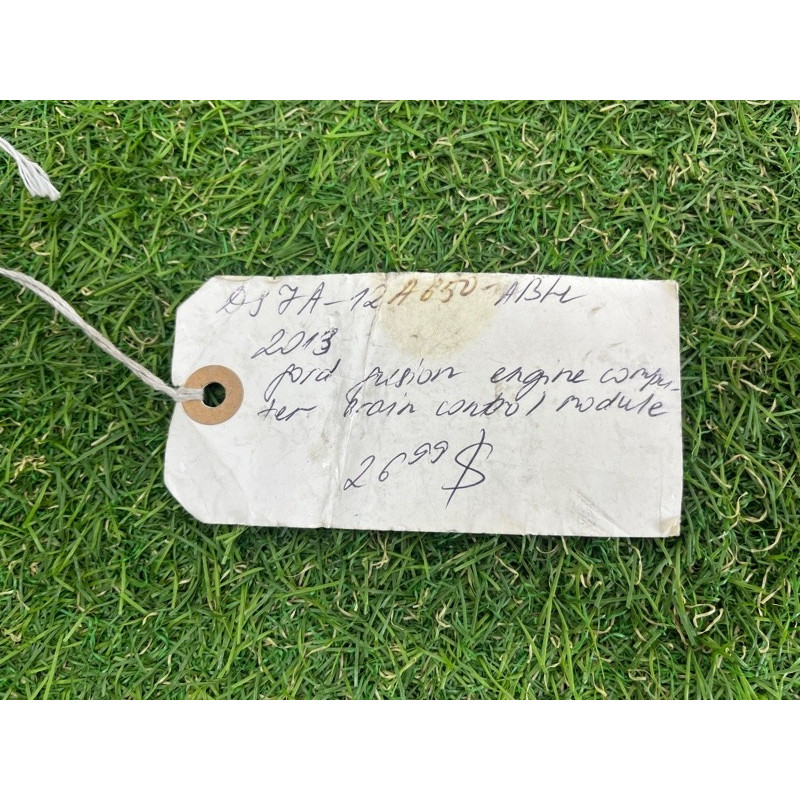 DS7A-12A650-ABH
2013
ford fusion engine compu-
ter Brain control module
26 99 $